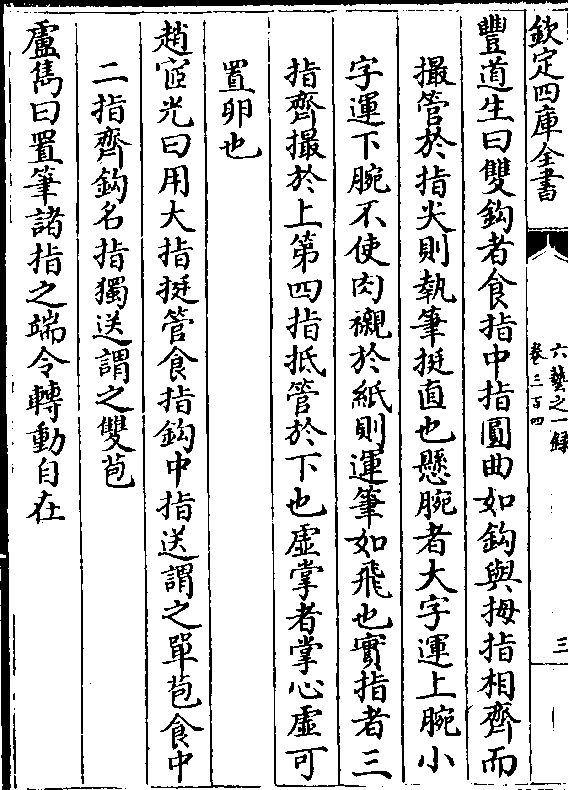 欽定四庫全書
六藝之一錄
卷三百四
三
豐道生曰雙鈎者食指中指圓曲如鈎與拇指相齊而
撮管於指尖則執筆挺直也懸腕者大字運上腕小
字運下腕不使肉襯於紙則運筆如飛也實指者三
指齊撮於上第四指抵管於下也虛掌者掌心虛可
置卵也
趙宧光曰用大指挺管食指鈎中指送謂之單苞食中
二指齊鈎名指獨送謂之雙苞
盧雋曰置筆諸指之端令轉動自在